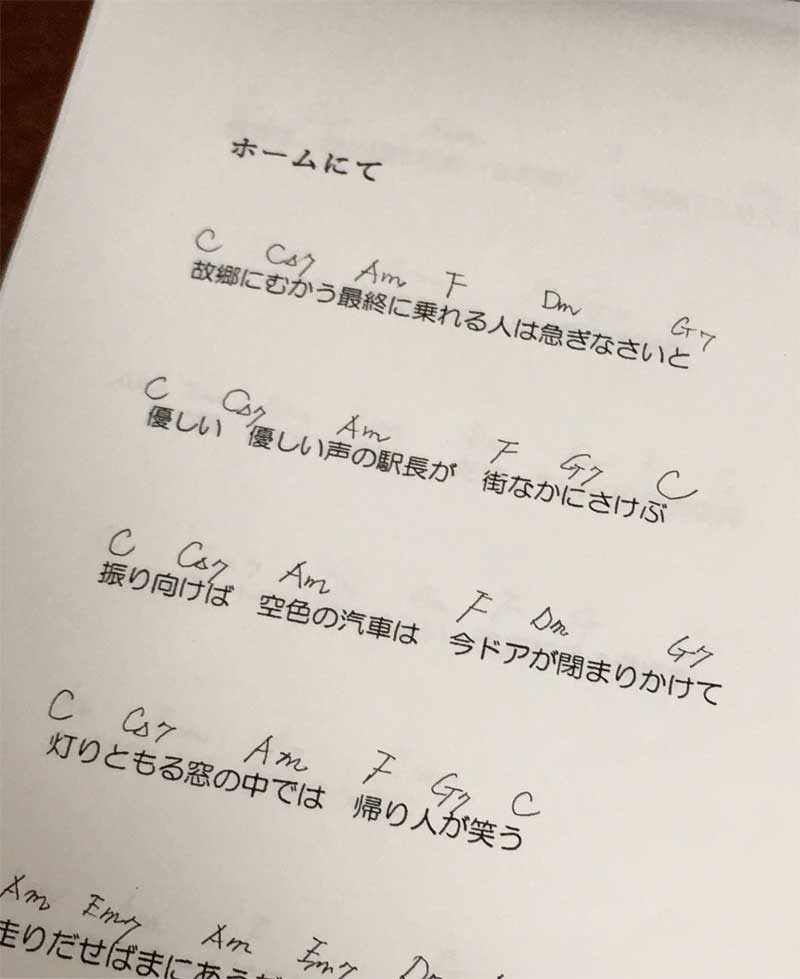 ホームにて
C C△7 Am F Dm G7
故郷にむかう最終に乗れる人は急ぎなさいと
C C△7 Am F G7 C
優しい 優しい声の駅長が 街なかにさけぶ
C C△7 Am F Dm G7
振り向けば 空色の汽車は 今ドアが閉まりかけて
C C△7 Am F G7 C
灯りともる窓の中では 帰り人が笑う
Am Em7 Am Em7 Dm
走りだせばまにあう